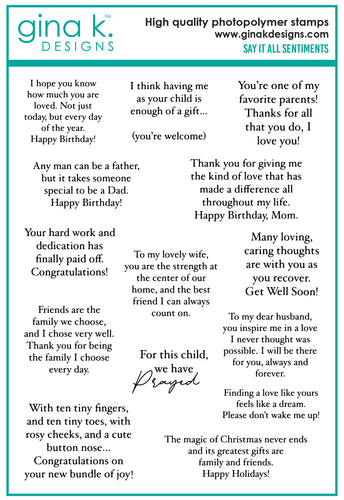 gina k.™
DESIGNS
High quality photopolymer stamps
www.ginakdesigns.com
SAY IT ALL SENTIMENTS
I hope you know
how much you are
loved. Not just
today, but every day
of the year.
Happy Birthday!
I think having me
as your child is
enough of a gift...
(you're welcome)
You're one of my
favorite parents!
Thanks for all
that you do, I
love you!
Any man can be a father,
but it takes someone
special to be a Dad.
Happy Birthday!
Thank you for giving me
the kind of love that has
made a difference all
throughout my life.
Happy Birthday, Mom.
Your hard work and
dedication has
finally paid off.
Congratulations!
To my lovely wife,
you are the strength at
the center of our
home, and the best
friend I can always
count on.
Many loving,
caring thoughts
are with you as
you recover.
Get Well Soon!
Friends are the
family we choose,
and I chose very well.
Thank you for being
the family I choose
every day.
For this child,
we have
Prayed
To my dear husband,
you inspire me in a love
I never thought was
possible. I will be there
for you, always and
forever.
Finding a love like yours
feels like a dream.
Please don't wake me up!
With ten tiny fingers,
and ten tiny toes, with
rosy cheeks, and a cute
button nose...
Congratulations on
your new bundle of joy!
The magic of Christmas never ends
and its greatest gifts are
family and friends.
Happy Holidays!